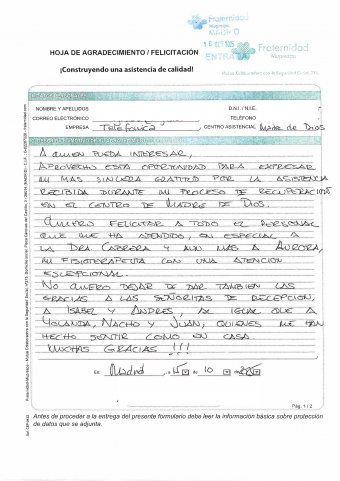 Fraternidad
Muprespa
MADRID
16 OCT 2025
ENTRADA
Fraternidad
Muprespa
HOJA DE AGRADECIMIENTO / FELICITACIÓN
¡Construyendo una asistencia de calidad!
Mutua Colaboradora con la Seguridad Social, 275
NOMBRE Y APELLIDOS
D.N.I. / N.I.E.
CORREO ELECTRÓNICO
TELÉFONO
EMPRESA Telefónica
CENTRO ASISTENCIAL Madre de Dios
A QUIEN PUEDA INTERESAR,
APROVECHO ESTA OPORTUNIDAD PARA EXPRESAR
MI MÁS SINCERA GRATITUD POR LA ASISTENCIA
RECIBIDA DURANTE MI PROCESO DE RECUPERACIÓN
EN EL CENTRO DE MADRE DE DIOS.
QUIERO FELICITAR A TODO EL PERSONAL
QUE ME HA ATENDIDO, EN ESPECIAL A
LA DRA. CABRERA Y AUN MAS A AURORA,
MI FISIOTERAPEUTA CON UNA ATENCION
EXCEPCIONAL.
NO QUIERO DEJAR DE DAR TAMBIEN LAS
GRACIAS A LAS SEÑORITAS DE RECEPCION,
A ISABEL Y ANDRES, AL IGUAL QUE A
YOLANDA, NACHO Y JUAN, QUIENES ME HAN
HECHO SENTIR COMO EN CASA.
MUCHAS GRACIAS !!!
En Madrid, a 15 de 10 de 2025
Pág. 1 / 2
Antes de proceder a la entrega del presente formulario debe leer la información básica sobre protección
de datos que se adjunta.